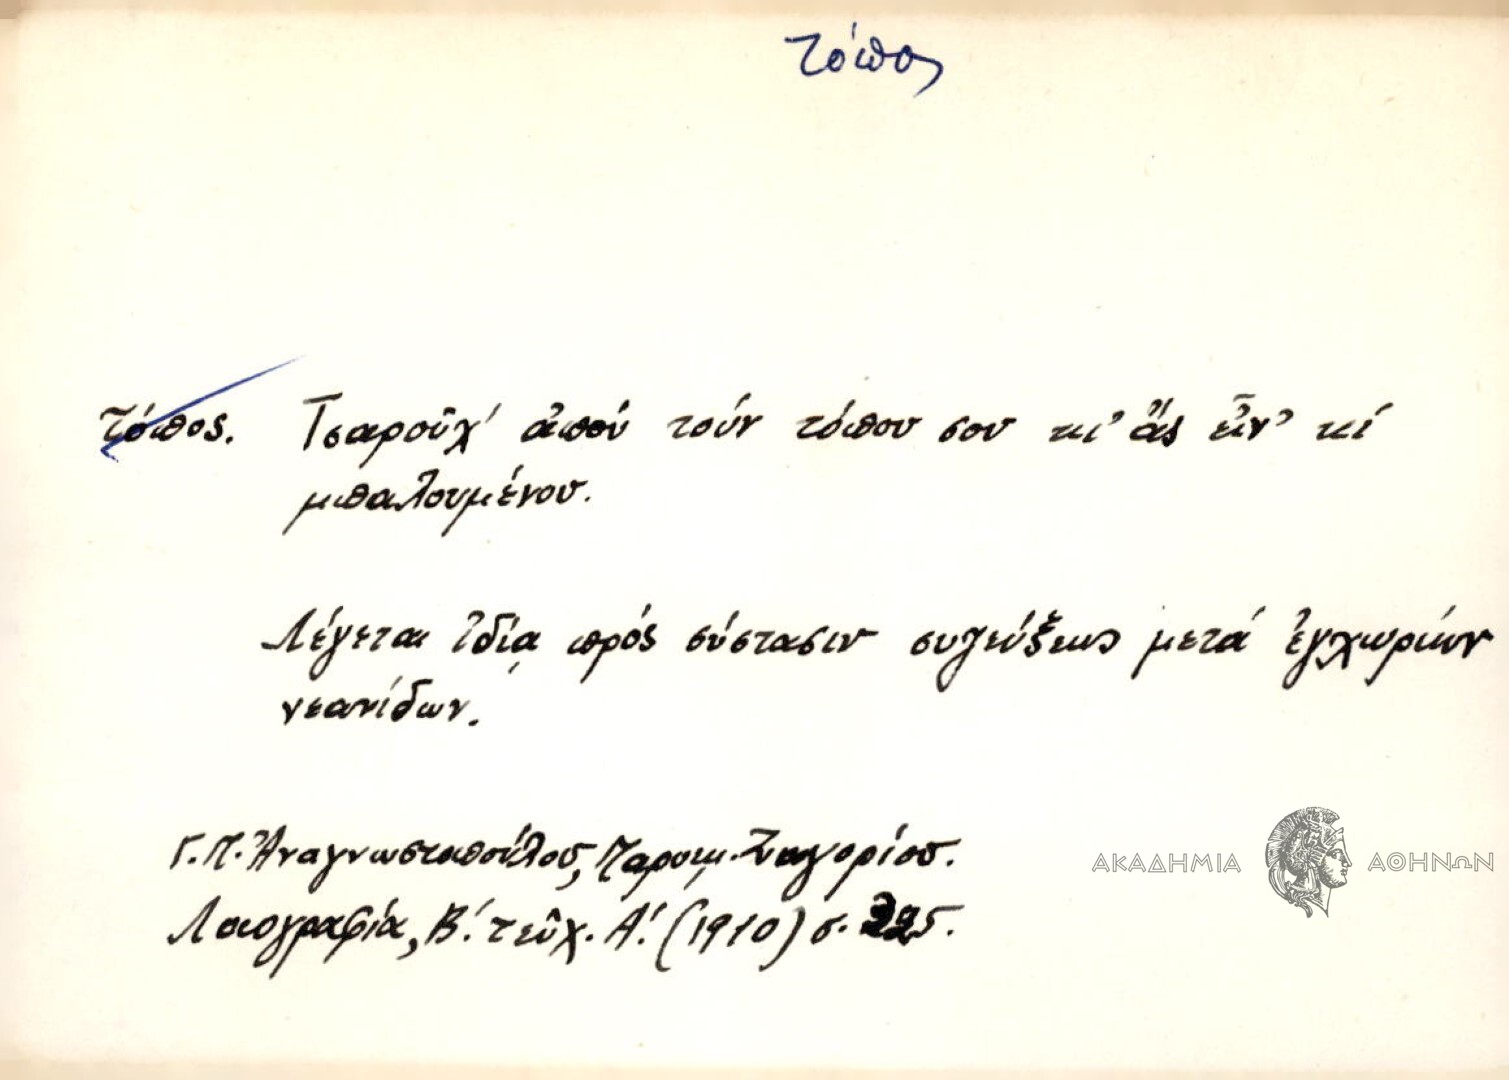 τόπος
τόπος. Τσαρούχ' ἀπού τούν τόπου σου κι' ἄς εἶν' κί
μπαλουμένου.
Λέγεται ἰδίᾳ πρός σύστασιν συζεύξεως μετά ἐγχωρίων
νεανίδων.
Γ. Π. Ἀναγνωστοπούλου, Παροιμ. Ζαγορίου.
Λαογραφία, Β΄. τεῦχ. Α΄. (1910) σ. 225.
ΑΚΑΔΗΜΙΑ ΑΘΗΝΩΝ